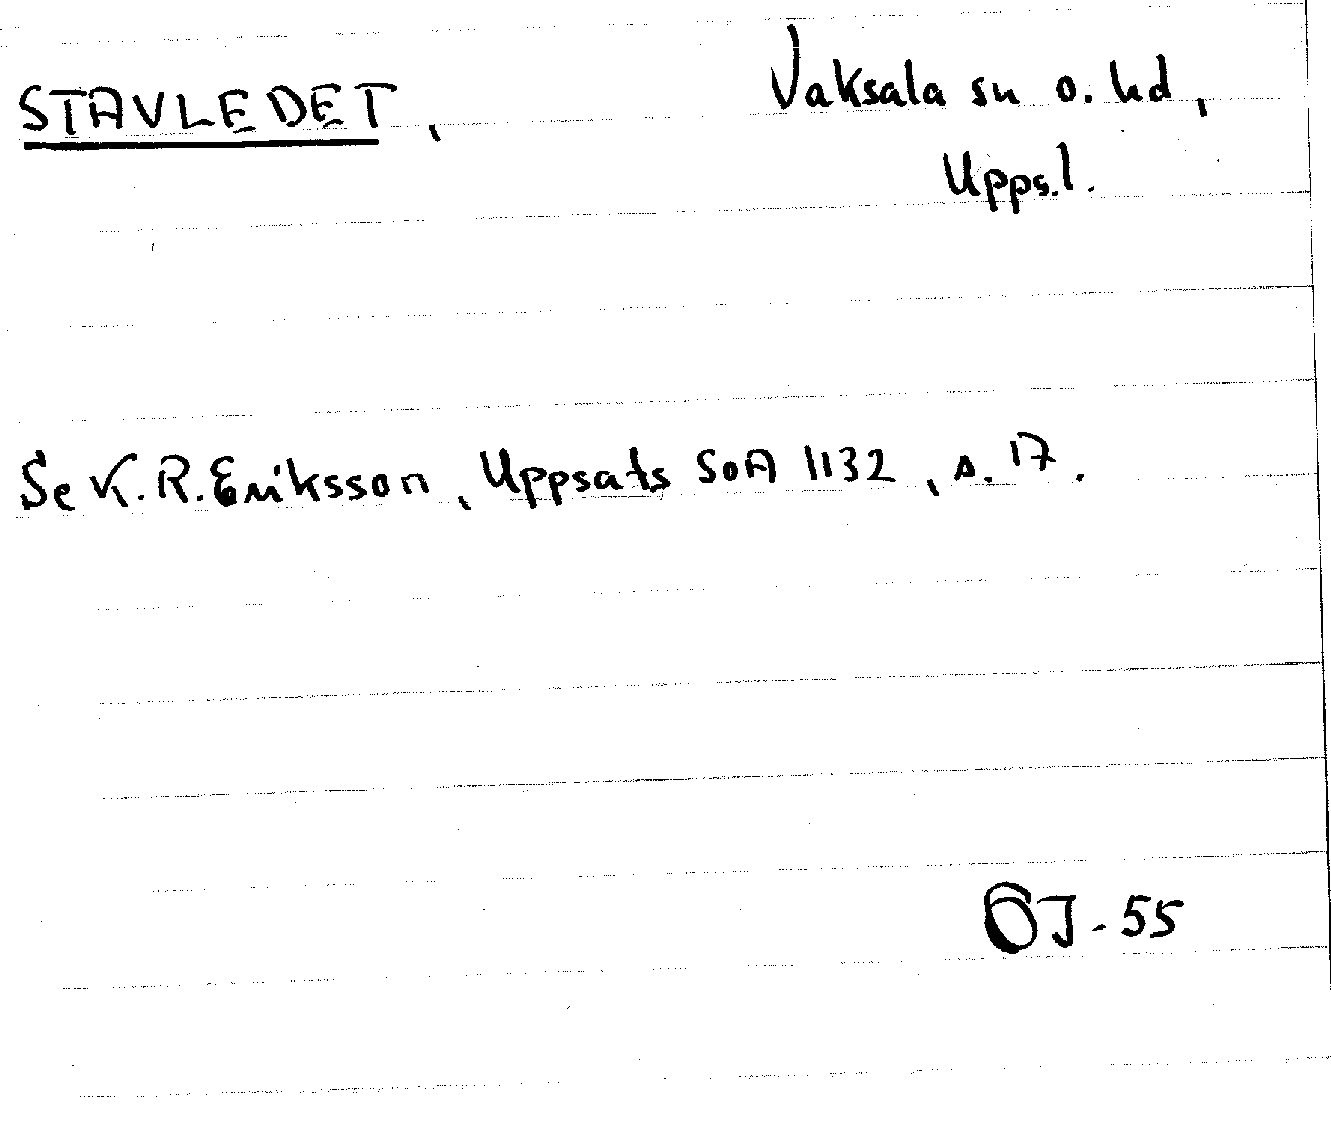 STAVLEDET, Vaksala sn o. hd,
Upps.l.
Se K. R. Eriksson, Uppsats SOA 1132, s. 17.
ÖJ - 55